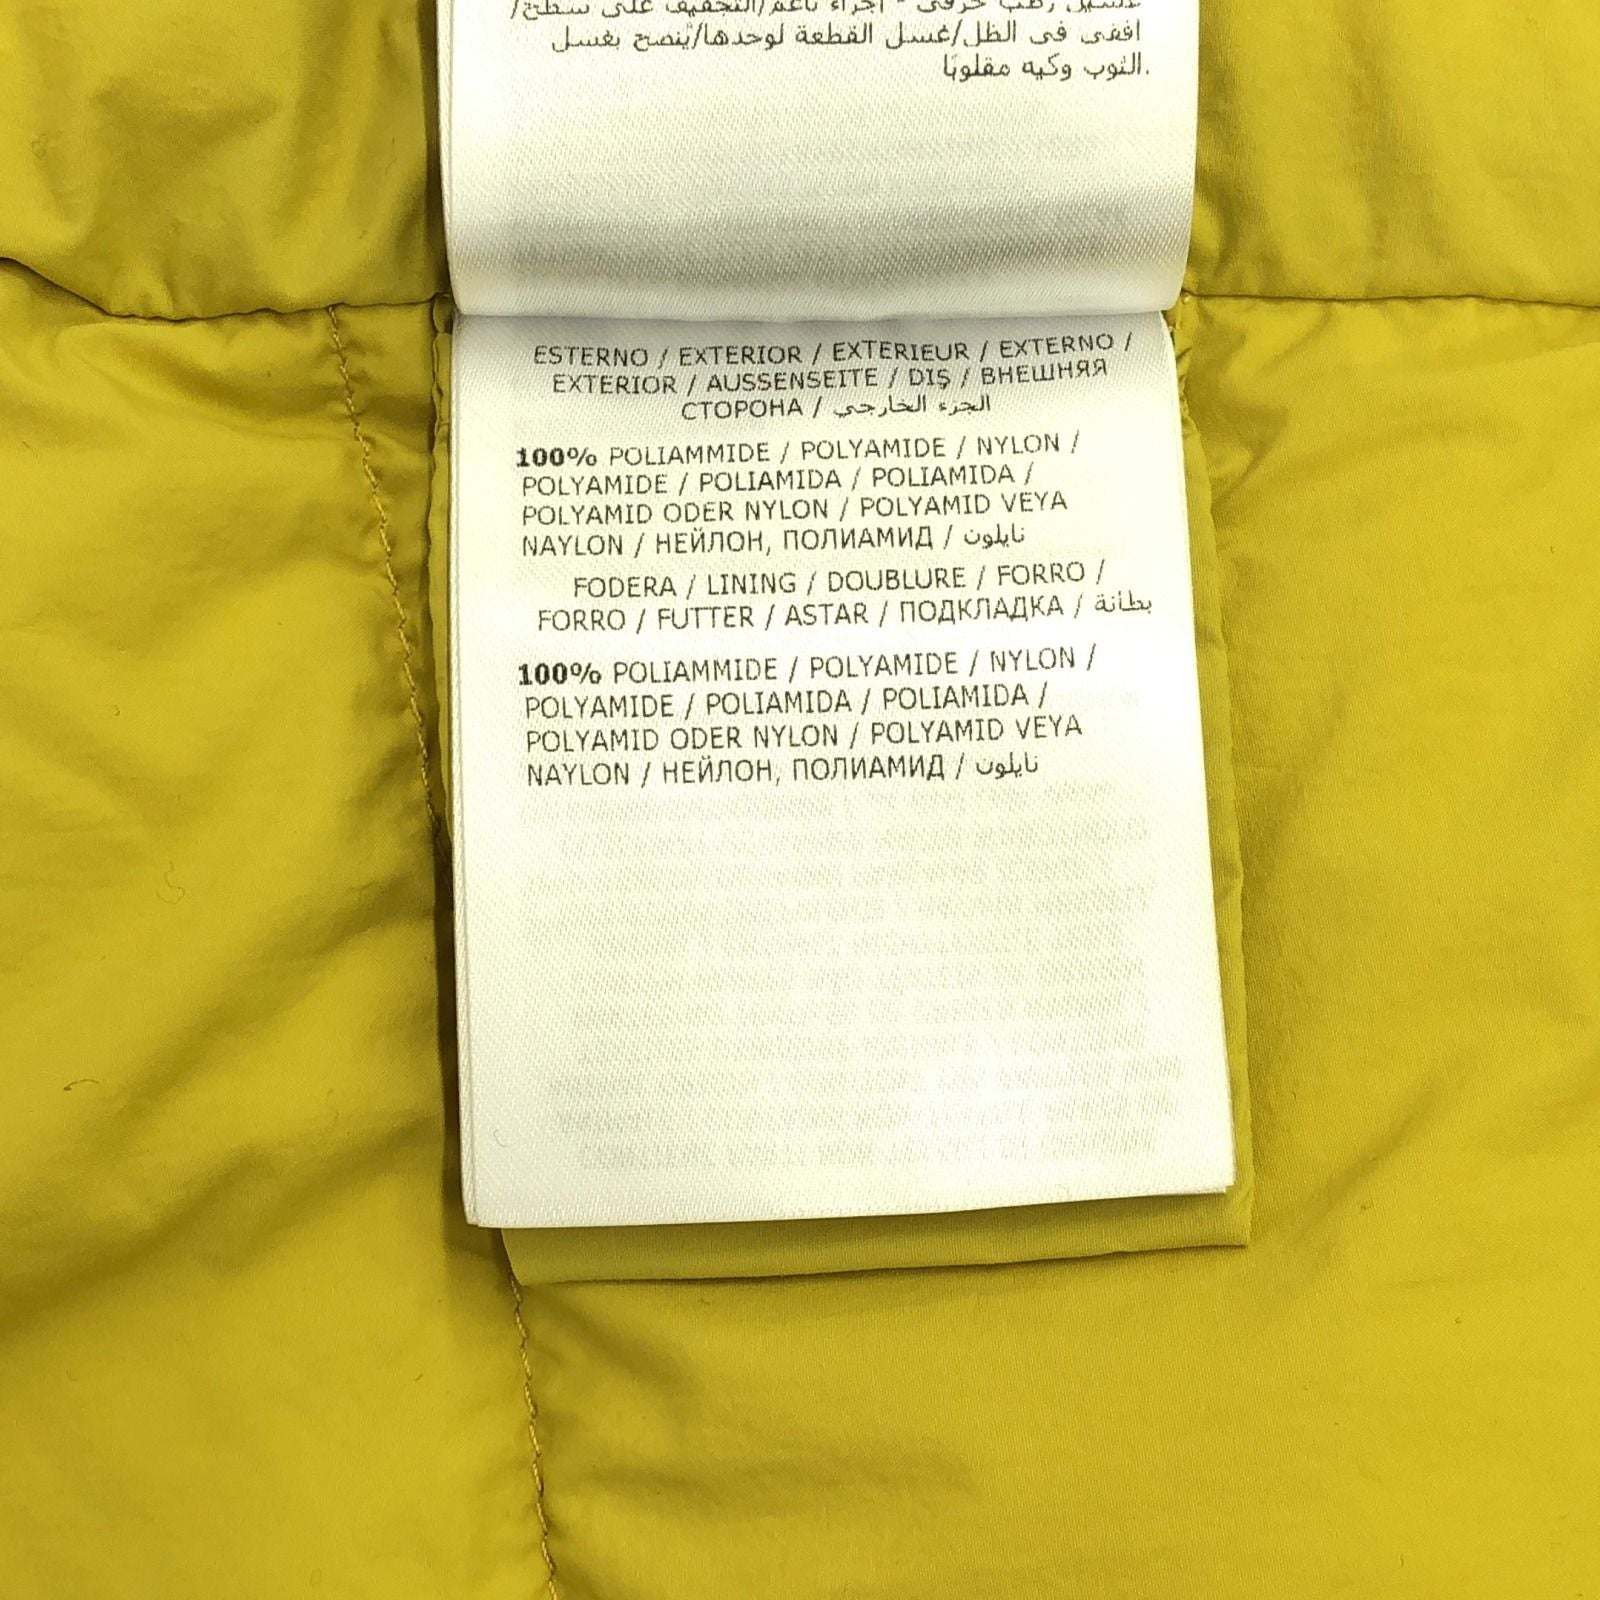 افقى فى الظل/غسل القطعة لوحدها/يُنصح بغسل
الثوب وكيه مقلوبًا.
ESTERNO / EXTERIOR / EXTERIEUR / EXTERNO /
EXTERIOR / AUSSENSEITE / DIŞ / ВНЕШНЯЯ
СТОРОНА / الجزء الخارجي
100% POLIAMMIDE / POLYAMIDE / NYLON /
POLYAMIDE / POLIAMIDA / POLIAMIDA /
POLYAMID ODER NYLON / POLYAMID VEYA
NAYLON / НЕЙЛОН, ПОЛИАМИД / نايلون
FODERA / LINING / DOUBLURE / FORRO /
FORRO / FUTTER / ASTAR / ПОДКЛАДКА / بطانة
100% POLIAMMIDE / POLYAMIDE / NYLON /
POLYAMIDE / POLIAMIDA / POLIAMIDA /
POLYAMID ODER NYLON / POLYAMID VEYA
NAYLON / НЕЙЛОН, ПОЛИАМИД / نايلون